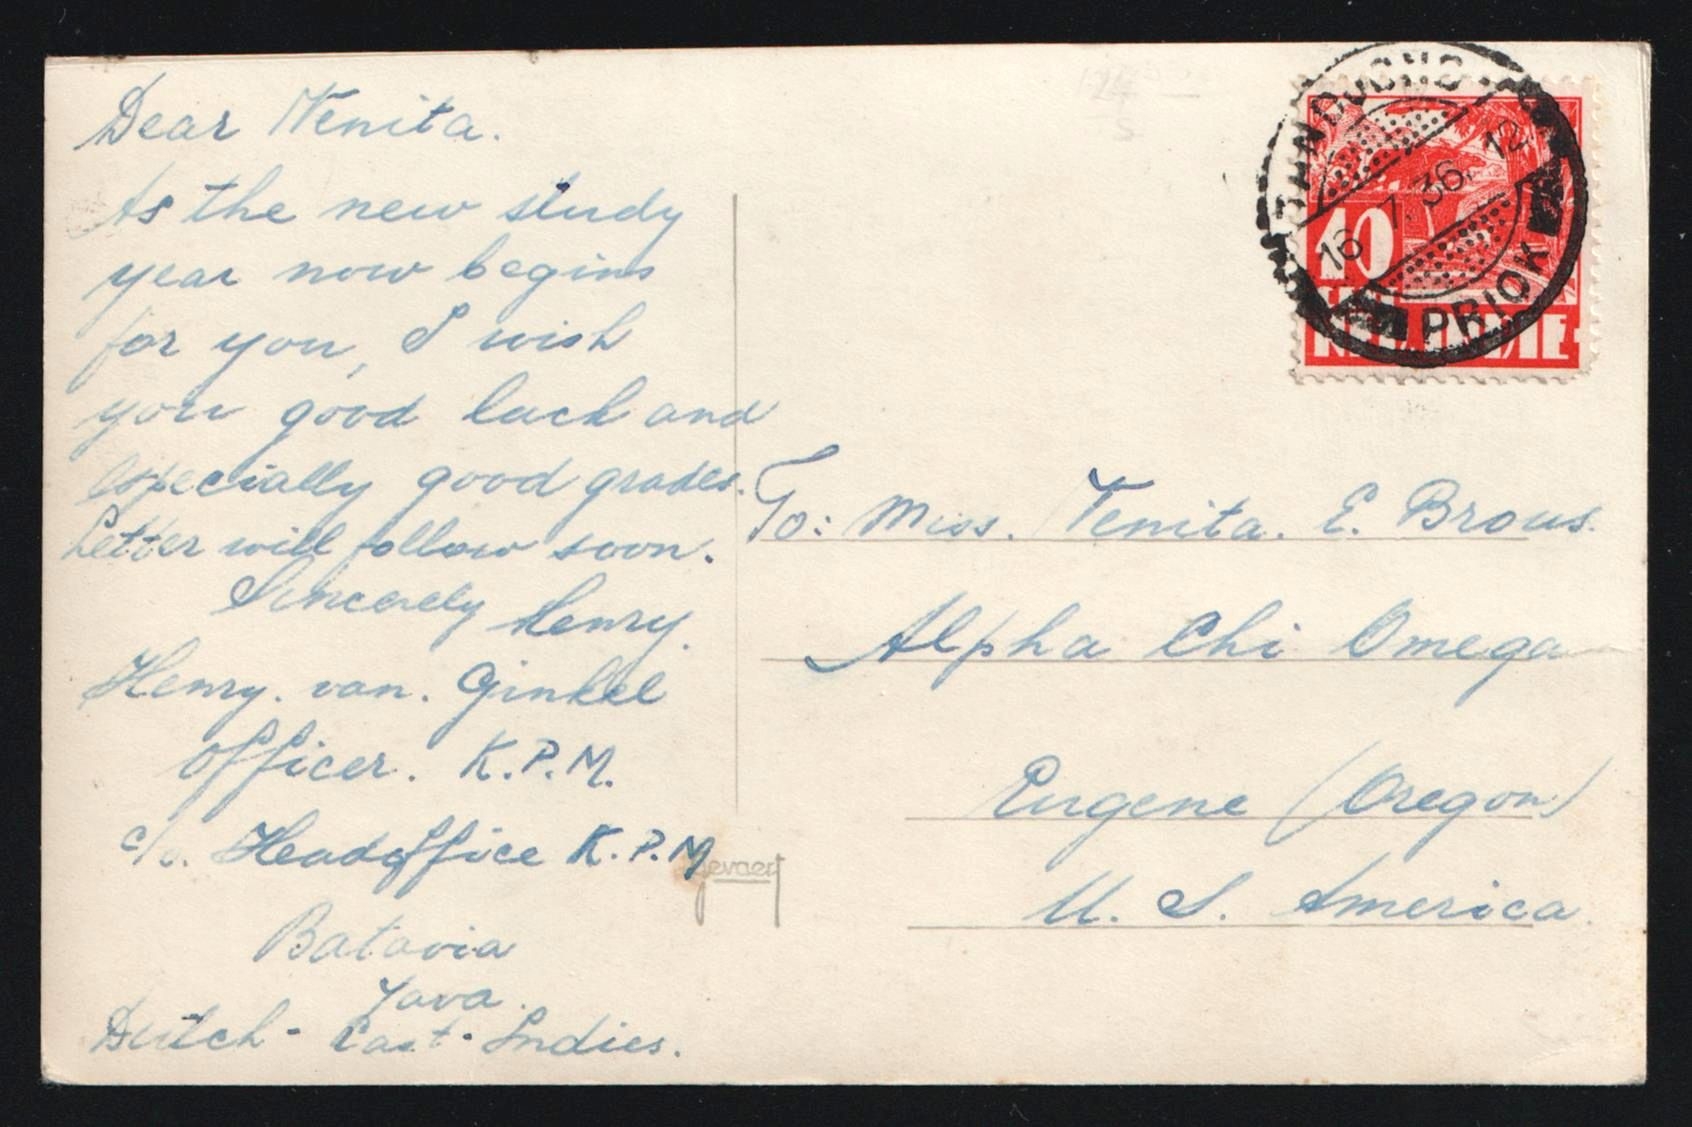 Dear Nenita.
As the new study
year now begins
for you, I wish
you good luck and
especially good grades.
Letter will follow soon.
Sincerely Henry.
Henry. van. Ginkel
Officer. K.P.M.
c/o. Headoffice K.P.M
Batavia
Java.
Dutch - East - Indies.
Gevaert
TANDJONG
16 7. 36. 12
PRIOK
10
NED. INDIE
To: Miss. Nenita. E. Brous.
Alpha Chi Omega
Eugene (Oregon)
U. S. America.